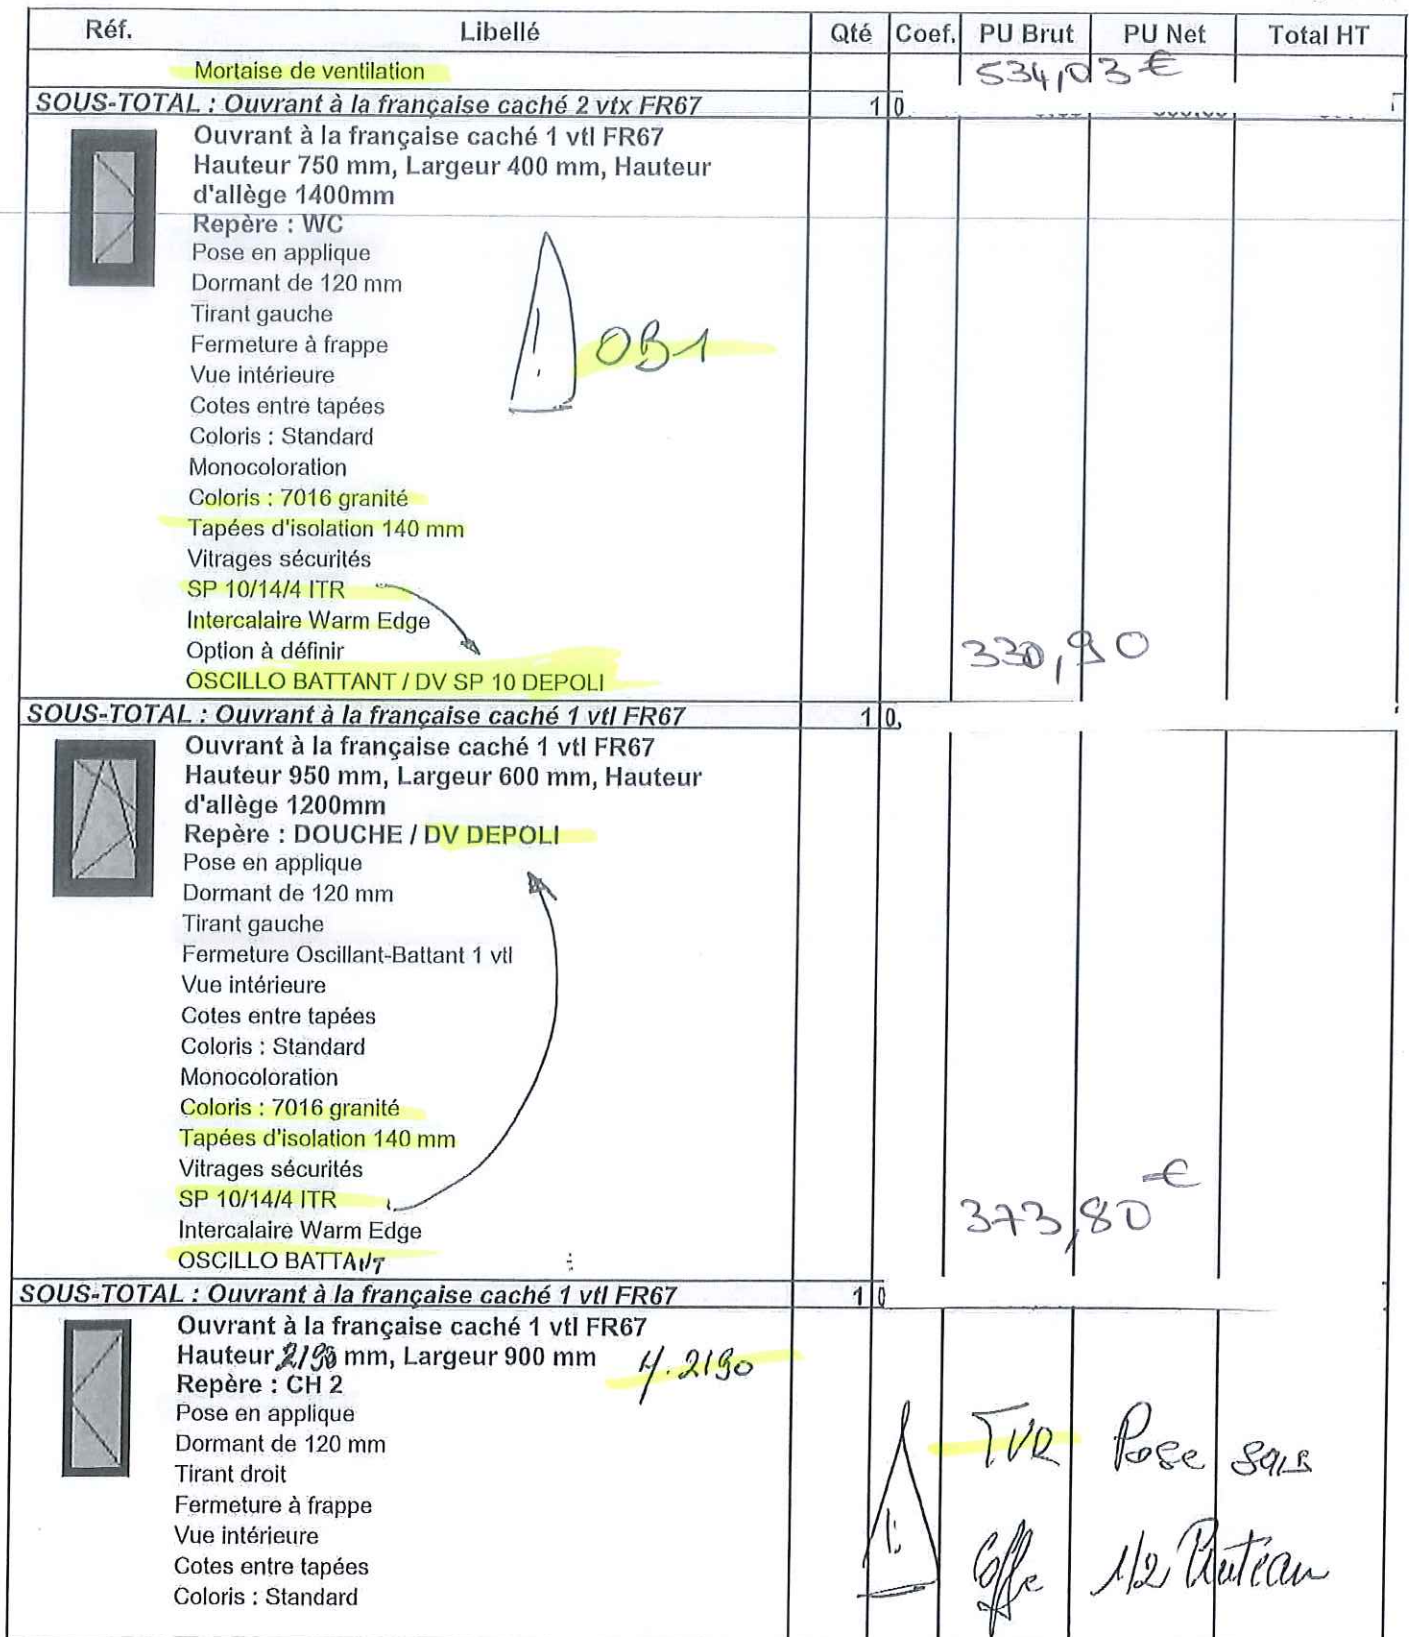 Réf. Libellé Qté Coef. PU Brut PU Net Total HT
Mortaise de ventilation 534,03 €
SOUS-TOTAL : Ouvrant à la française caché 2 vtx FR67 1 0
Ouvrant à la française caché 1 vtl FR67
Hauteur 750 mm, Largeur 400 mm, Hauteur
d'allège 1400mm
Repère : WC
Pose en applique
Dormant de 120 mm
Tirant gauche
Fermeture à frappe OB1
Vue intérieure
Cotes entre tapées
Coloris : Standard
Monocoloration
Coloris : 7016 granité
Tapées d'isolation 140 mm
Vitrages sécurités
SP 10/14/4 ITR
Intercalaire Warm Edge
Option à définir 330,90
OSCILLO BATTANT / DV SP 10 DEPOLI
SOUS-TOTAL : Ouvrant à la française caché 1 vtl FR67 1 0,
Ouvrant à la française caché 1 vtl FR67
Hauteur 950 mm, Largeur 600 mm, Hauteur
d'allège 1200mm
Repère : DOUCHE / DV DEPOLI
Pose en applique
Dormant de 120 mm
Tirant gauche
Fermeture Oscillant-Battant 1 vtl
Vue intérieure
Cotes entre tapées
Coloris : Standard
Monocoloration
Coloris : 7016 granité
Tapées d'isolation 140 mm
Vitrages sécurités
SP 10/14/4 ITR 373,80 €
Intercalaire Warm Edge
OSCILLO BATTANT
SOUS-TOTAL : Ouvrant à la française caché 1 vtl FR67 1 0
Ouvrant à la française caché 1 vtl FR67
Hauteur 2190 mm, Largeur 900 mm H. 2190
Repère : CH 2
Pose en applique
Dormant de 120 mm TVR Pose sous
Tirant droit
Fermeture à frappe
Vue intérieure
Cotes entre tapées Coffre 1/2
Coloris : Standard